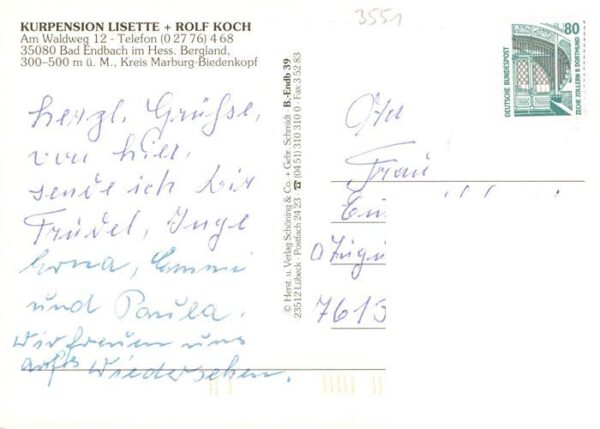 KURPENSION LISETTE + ROLF KOCH
Am Waldweg 12 - Telefon (0 27 76) 4 68
35080 Bad Endbach im Hess. Bergland,
300–500 m ü. M., Kreis Marburg-Biedenkopf
herzl. Grüße,
von hier.
sende ich Dir
Trudel, Inge
Erna, Emmi
und Paula.
Wir freuen uns
aufs Wiedersehen.
© Herst. u. Verlag Schöning & Co. + Gebr. Schmidt B.-Endb 39
23512 Lübeck · Postfach 24 23 ☎ (04 51) 310 310 0 · Fax 3 52 83
3551
80
DEUTSCHE BUNDESPOST
ZECHE ZOLLERN II DORTMUND
An
Frau
7613